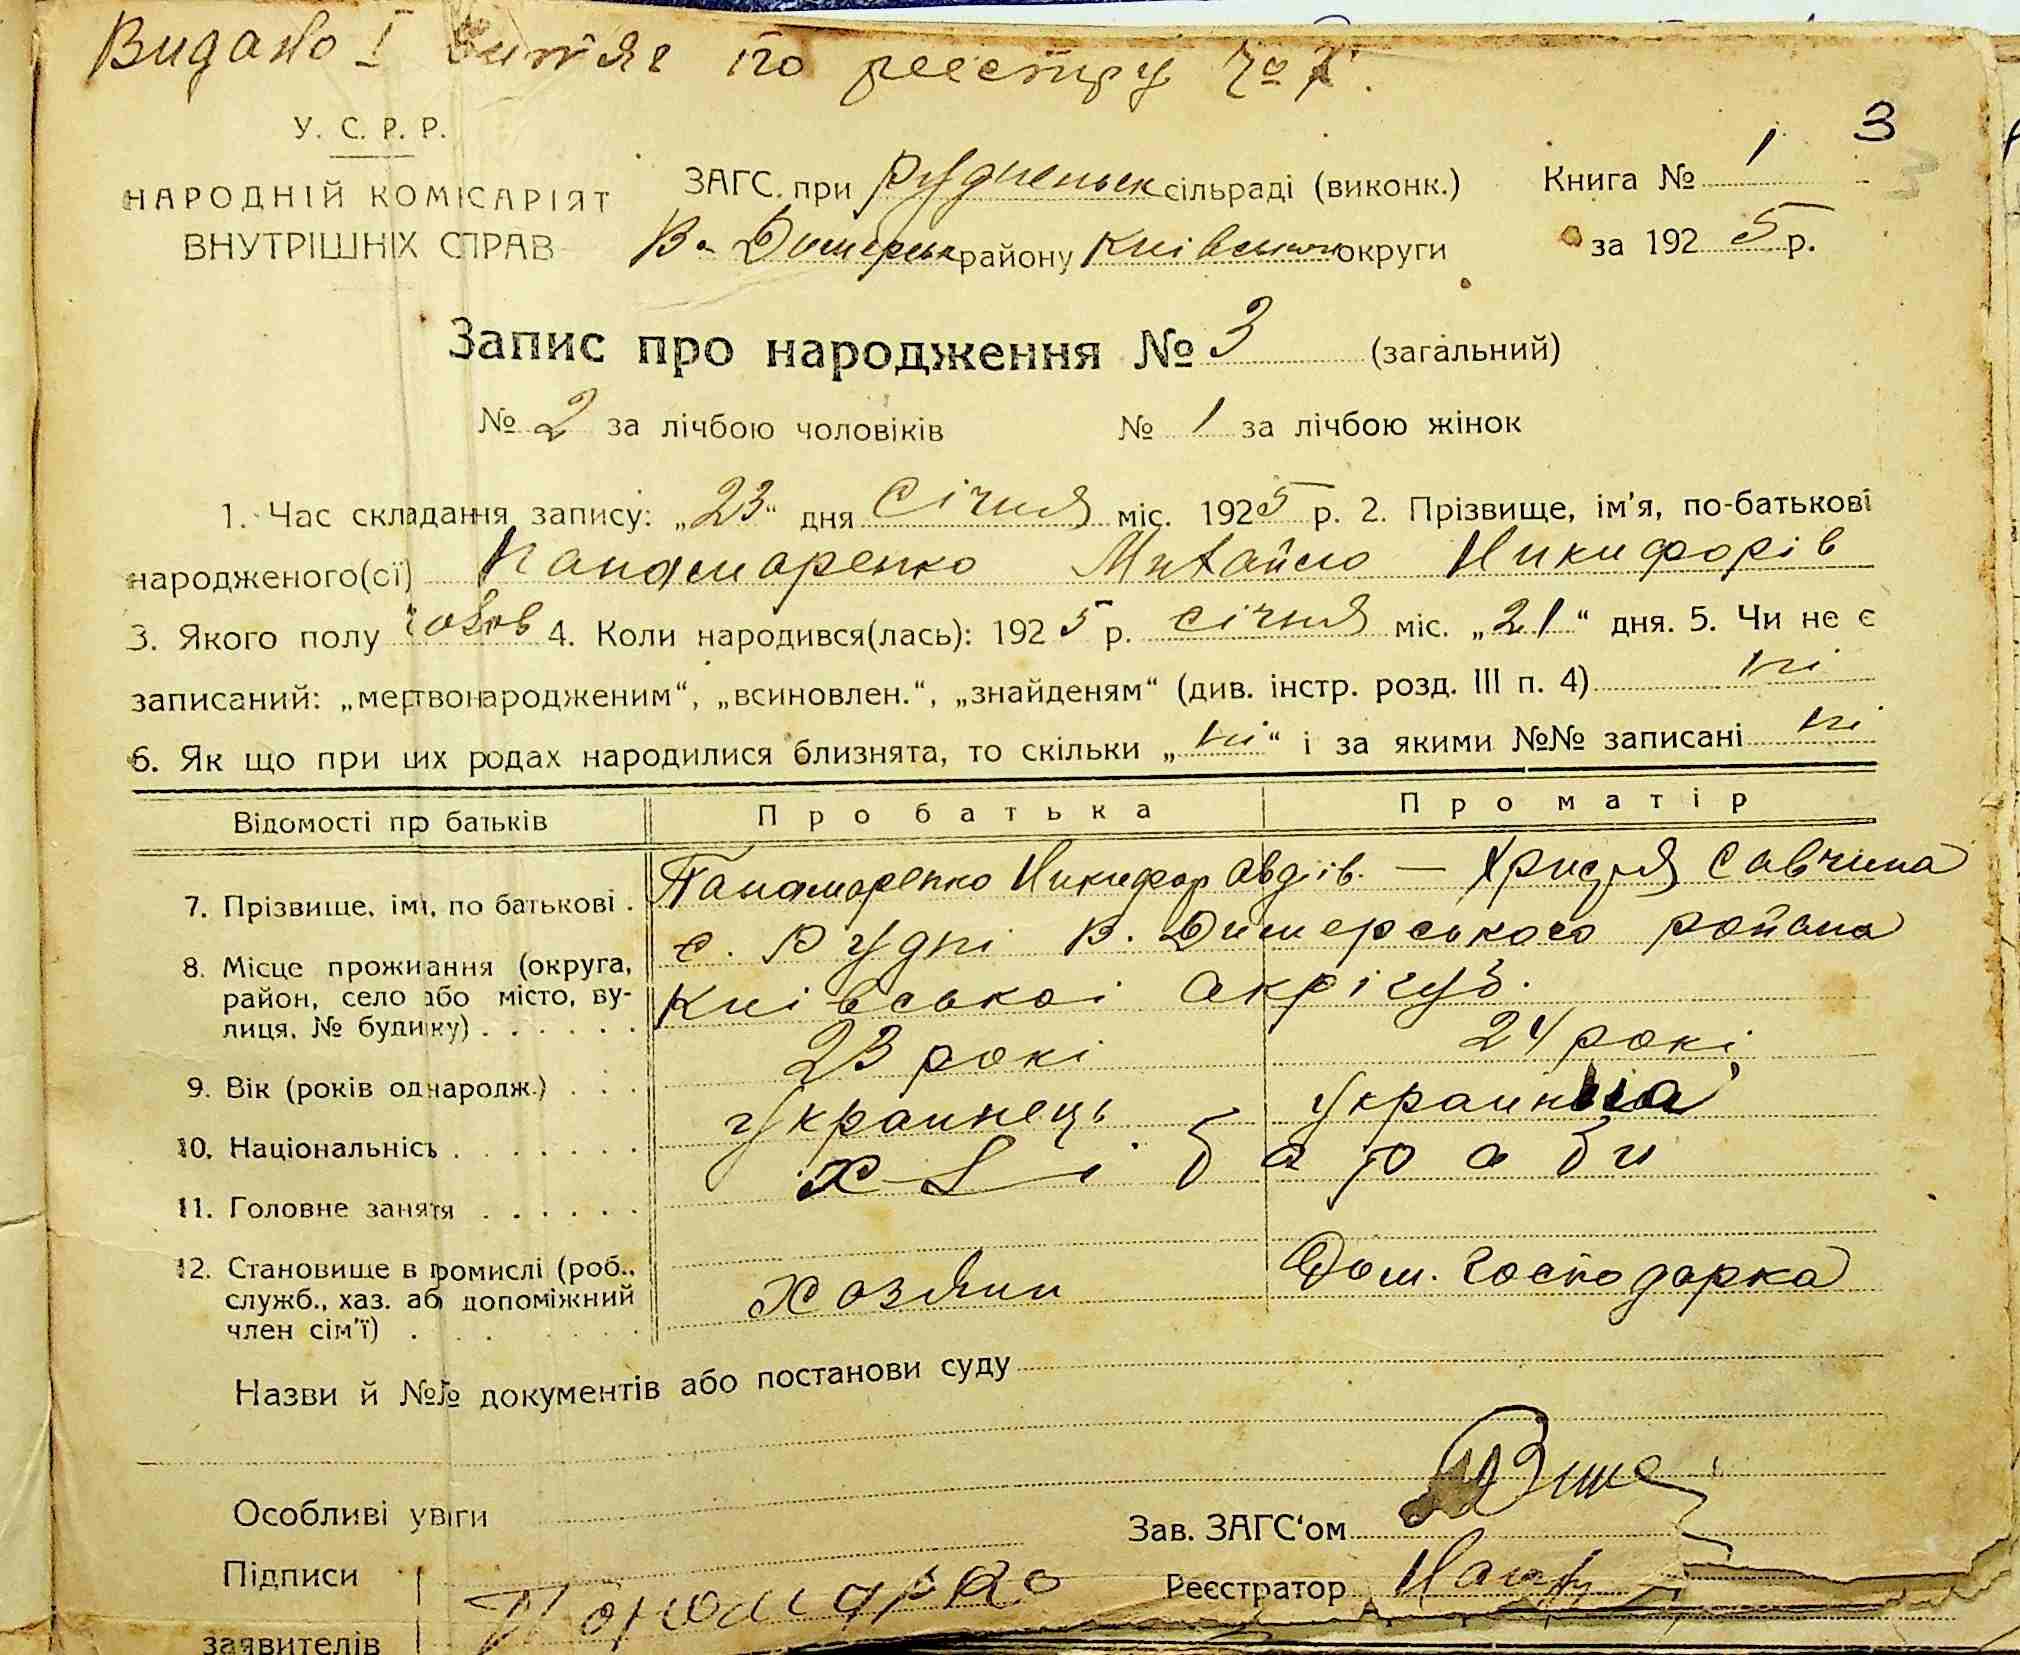 Видано I витяг по реєстру
3
У. С. Р. Р.
НАРОДНІЙ КОМІСАРІЯТ
ВНУТРІШНІХ СПРАВ
ЗАГС. при Рудненьск сільраді (виконк.) Книга № 1
В. Димерськ району Київської округи за 1925 р.
Запис про народження № 3 (загальний)
№ 2 за лічбою чоловіків № 1 за лічбою жінок
1. Час складання запису: „23“ дня Січня міс. 1925 р. 2. Прізвище, ім'я, по-батькові
народженого(сї) Панамаренко Михайло Никифорів
3. Якого полу чолов 4. Коли народився(лась): 1925 р. січня міс. „21“ дня. 5. Чи не є
записаний: „мертвонародженим“, „всиновлен.“, „знайденям“ (див. інстр. розд. III п. 4) ні
6. Як що при цих родах народилися близнята, то скільки „ні“ і за якими №№ записані ні
Відомості про батьків Про батька Про матір
7. Прізвище, імі, по батькові . Панамаренко Никифор Авдів. — Христя Савчина
8. Місце проживання (округа, район, село або місто, вулиця, № будинку) . . . . . . с. Рудні В. Димерського района
Київськоі Акріги
9. Вік (років од народж.) . . . 23 рокі 24 рокі
10. Національнісь . . . . . . . Украинець Украинка
11. Головне заняття . . . . . . хлібароби
12. Становище в промислі (роб., служб., хаз. або допоміжний член сім'ї) . Хозяин Дом. господарка
Назви й №№ документів або постанови суду
Особливі уваги
Зав. ЗАГС'ом
Підписи
Реєстратор
заявителів